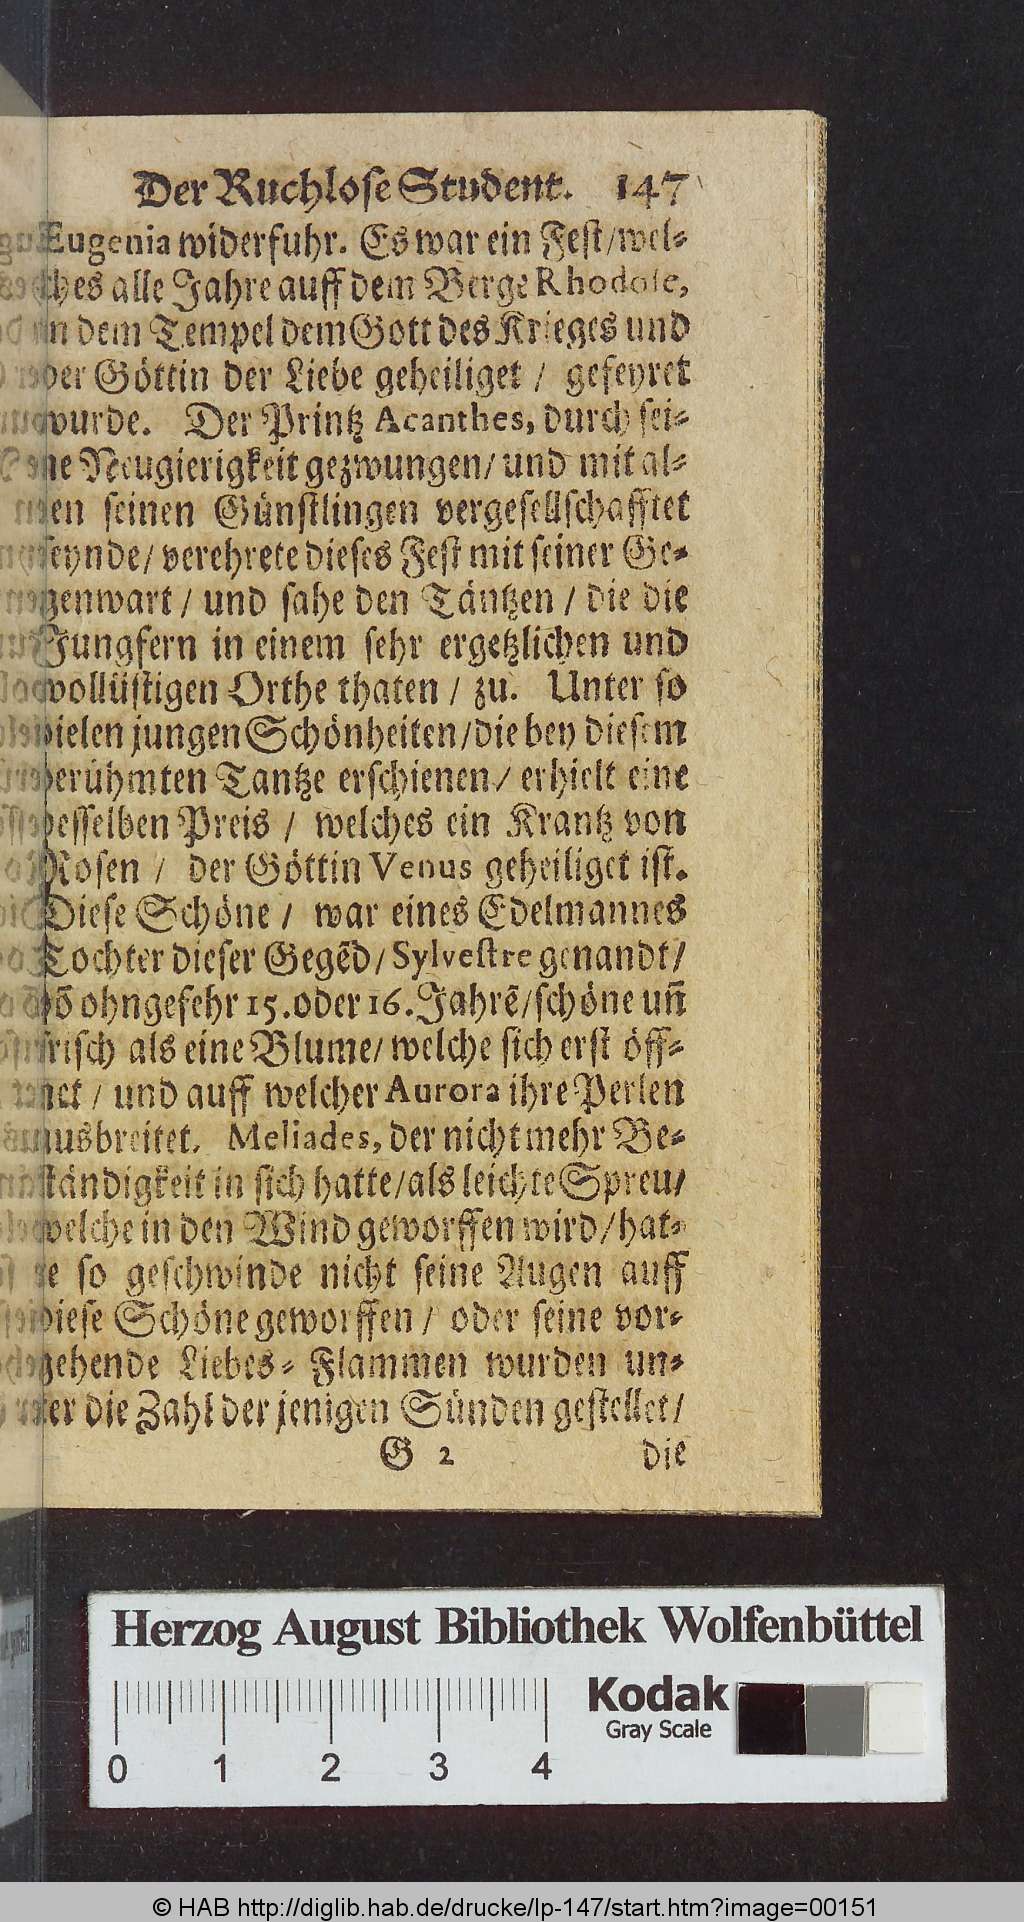 Der Ruchlose Student. 147
Eugenia widerfuhr. Es war ein Fest/wel-
ches alle Jahre auff dem Berge Rhodole,
in dem Tempel dem Gott des Krieges und
der Göttin der Liebe geheiliget / gefeyret
wurde. Der Printz Acanthes, durch sei-
ne Neugierigkeit gezwungen/ und mit al-
len seinen Günstlingen vergesellschafftet
seynde/ verehrete dieses Fest mit seiner Ge-
genwart / und sahe den Täntzen / die die
Jungfern in einem sehr ergetzlichen und
wollüstigen Orthe thaten / zu. Unter so
vielen jungen Schönheiten/die bey diesem
berühmten Tantze erschienen/ erhielt eine
desselben Preis / welches ein Krantz von
Rosen / der Göttin Venus geheiliget ist.
Diese Schöne / war eines Edelmannes
Tochter dieser Gegēd/Sylvestre genandt/
vō ohngefehr 15. oder 16. Jahrē/schöne uñ
frisch als eine Blume/ welche sich erst öff-
net / und auff welcher Aurora ihre Perlen
ausbreitet. Meliades, der nicht mehr Be-
ständigkeit in sich hatte/als leichte Spreu/
welche in den Wind geworffen wird/hat-
te so geschwinde nicht seine Augen auff
diese Schöne geworffen / oder seine vor-
gehende Liebes-Flammen wurden un-
ter die Zahl der jenigen Sünden gestellet/
G 2 die
Herzog August Bibliothek Wolfenbüttel
Kodak
Gray Scale
0 1 2 3 4
© HAB http://diglib.hab.de/drucke/lp-147/start.htm?image=00151